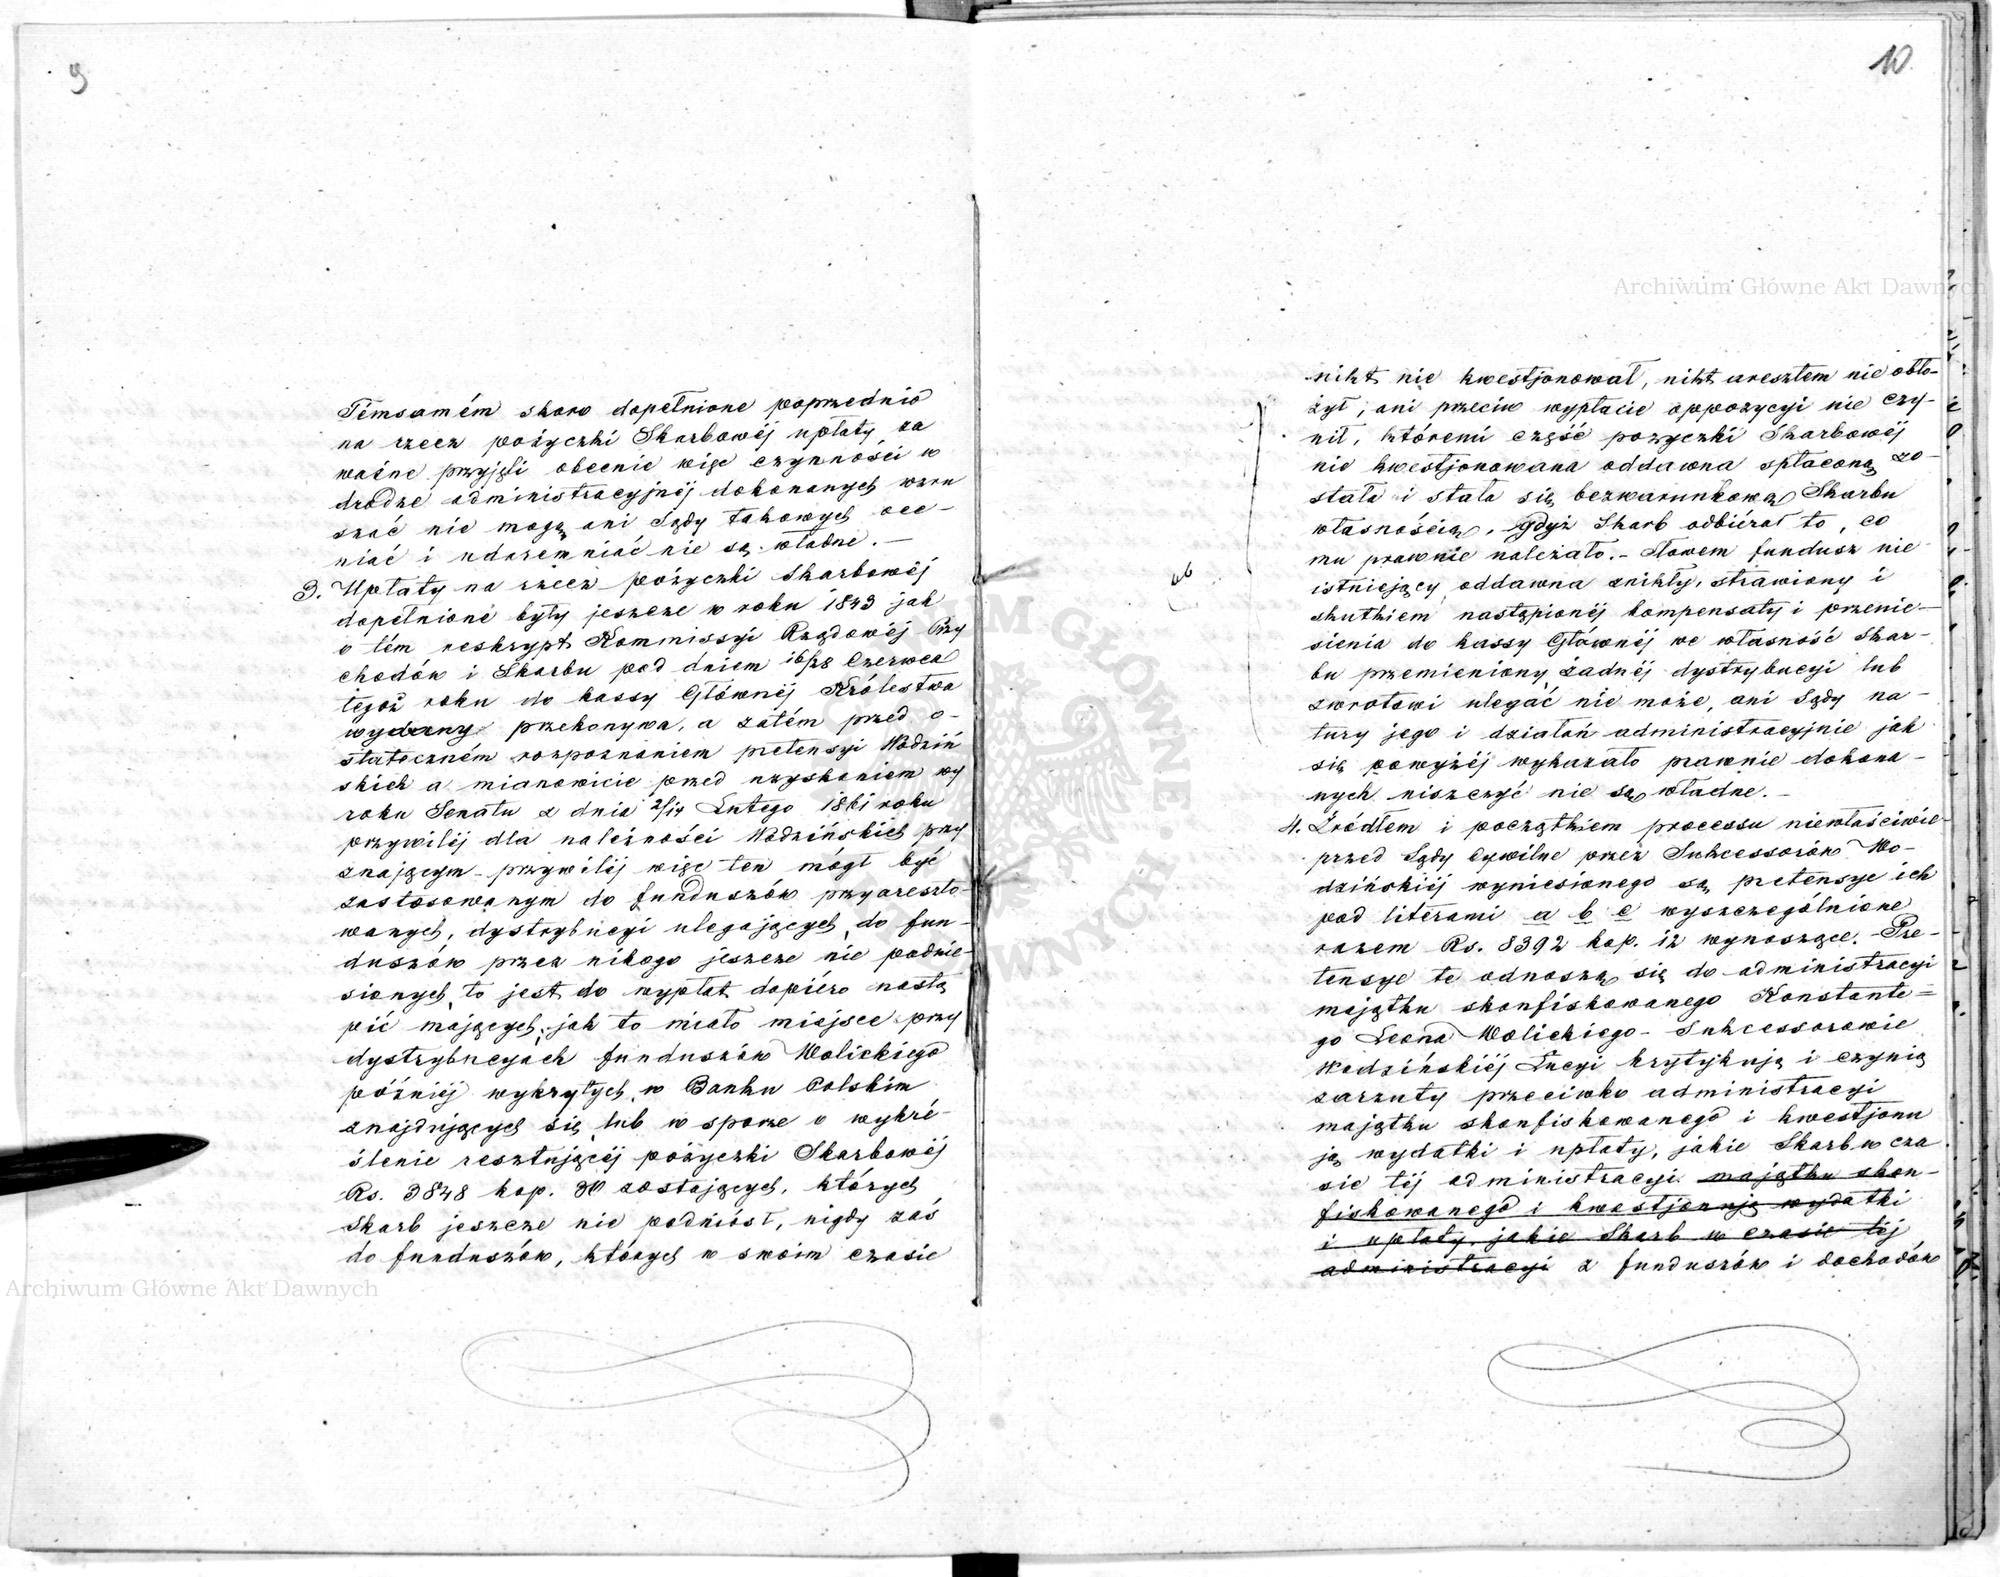 9
Témsamém skoro dopełnione poprzednio
na rzecz pożyczki Skarbowéj upłaty za
ważne przyjęli obecnie więc czynności w
drodze administracyjnéj dokonanych wzru
szać nie mogą ani Sądy takowych oce-
niać i udaremniać nie są władne. —
3. Upłaty na rzecz pożyczki Skarbowéj
dopełnione były jeszcze w roku 1843 jak
o tém reskrypt Kommissyi Rządowéj Przy
chodów i Skarbu pod dniem 16/28 Czerwca
tegoż roku do kassy Głównéj Królestwa
wydany przekonywa, a zatém przed o-
stateczném rozpoznaniem pretensyi Wodziń
skich a mianowicie przed uzyskaniem wy
roku Senatu z dnia 2/14 Lutego 1861 roku
przywiléj dla należności Wodzińskich przy
znającym – przywiléj więc ten mógł być
zastosowanym do funduszów przyareszto-
wanych, dystrybucyi ulegających, do fun-
duszów przez nikogo jeszcze nie podnie-
sionych, to jest do wypłat dopiéro nastą
pić mających, jak to miało miejsce przy
dystrybucyach funduszów Wolickiego
późniéj wykrytych, w Banku Polskim
znajdujących się, lub w sporze o wykré-
ślenie resztującéj pożyczki Skarbowéj
Rs. 3848 kop. 30 zostających, których
Skarb jeszcze nie podniósł, nigdy zaś
do funduszów, których w swoim czasie
10
nikt nie kwestjonował, nikt aresztem nie obło-
żył, ani przeciw wypłacie oppozycyi nie czy-
nił, któremi część pożyczki Skarbowéj
nie kwestjonowana oddawna spłaconą zo-
stała i stała się bezwarunkową Skarbu
własnością, gdyż Skarb odbiérał to, co
mu prawnie należało. – Słowem fundusz nie
istniejący, oddawna znikły, strawiony i
skutkiem nastąpionéj kompensaty i przenie-
sienia do kassy Głównéj we własność Skar-
bu przemieniony żadnéj dystrybucyi lub
zwrotowi ulegać nie może, ani Sądy na-
tury jego i działań administracyjnie jak
się powyżéj wykazało prawnie dokona-
nych niszczyć nie są władne. –
4. Źródłem i początkiem processu niewłaściwie
przed Sądy Cywilne przez Sukcessorów Wo-
dzińskiéj wyniesionego są pretensye ich
pod literami a b c wyszczególnione
razem Rs. 8392 kop. 12 wynoszące. – Pre-
tensye te odnoszą się do administracyi
majątku skonfiskowanego Konstante-
go Leona Wolickiego – Sukcessorowie
Wodzińskiéj Łucyi krytykują i czynią
zarzuty przeciwko administracyi
majątku skonfiskowanego i kwestjonu
ją wydatki i upłaty, jakie Skarb w cza
sie téj administracyi majątku skon-
fiskowanego i kwestjonują wydatki
i upłaty, jakie Skarb w czasie téj
administracyi z funduszów i dochodów
Archiwum Główne Akt Dawnych
Archiwum Główne Akt Dawnych